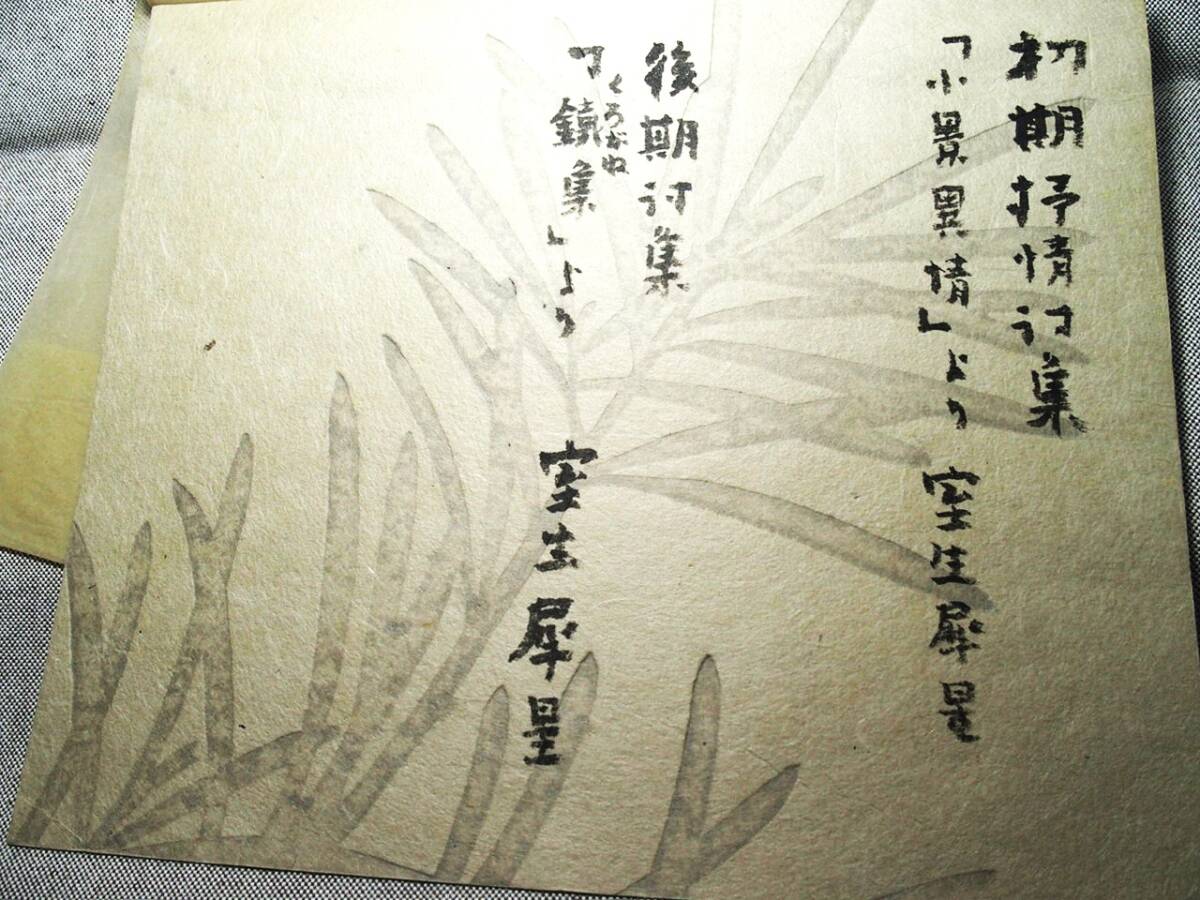 初期抒情詩集
「小景異情」より 室生犀星
後期詩集
くろがね
「鐵集」より 室生犀星